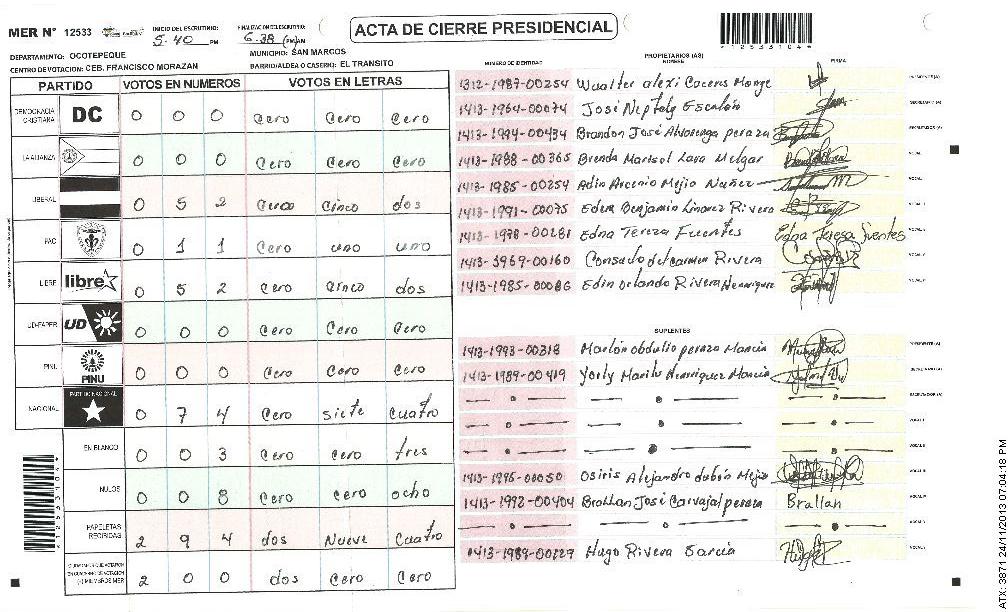 MER N° 12533
INICIO DEL ESCRUTINIO: 5.40 PM
FINALIZACION ESCRUTINIO: 6.38 (PM) AM
ACTA DE CIERRE PRESIDENCIAL
1 2 5 3 3 1 0 4 4
DEPARTAMENTO: OCOTEPEQUE
MUNICIPIO: SAN MARCOS
CENTRO DE VOTACION: CEB. FRANCISCO MORAZAN
BARRIO/ALDEA O CASERIO: EL TRANSITO
PARTIDO VOTOS EN NUMEROS VOTOS EN LETRAS
DEMOCRACIA CRISTIANA DC 0 0 0 Cero Cero Cero
LA ALIANZA 0 0 0 Cero Cero Cero
LIBERAL 0 5 2 Cero Cinco dos
PAC 0 1 1 Cero uno uno
LIBRE libre 0 5 2 Cero Cinco dos
UD-FAPER UD 0 0 0 Cero Cero Cero
PINU PINU 0 0 0 Cero Cero Cero
NACIONAL PARTIDO NACIONAL 0 7 4 Cero siete cuatro
EN BLANCO 0 0 3 Cero Cero tres
NULOS 0 0 8 Cero Cero ocho
PAPELETAS RECIBIDAS 2 9 4 dos Nueve Cuatro
(+) MIEMBROS MER 2 0 0 dos Cero Cero
PROPIETARIOS (AS)
NUMERO DE IDENTIDAD NOMBRE FIRMA
1312-1987-00254 Wualter alexi Caceres Monge
1413-1964-00074 José Neptaly Escalón
1413-1994-00434 Brandon José Alvarenga peraza
1413-1988-00365 Brenda Marisol Lara Melgar
1413-1985-00254 Adin Arcenio Mejia Nuñez
1413-1991-00075 Edwin Benjamin Linarez Rivera
1413-1978-00281 Edna Tereza Fuentes Edna Teresa fuentes
1413-3969-00160 Consuelo del carmen Rivera
1413-1985-00086 Edin orlando Rivera Henriquez
SUPLENTES
1413-1993-00318 Marlón obdulio peraza Mancia
1413-1989-00419 Yorly Marilu Henriquez Mancia
1413-1995-00050 Osiris Alejandro dubón Mejia
1413-1992-00404 Brallan José Carvajal peraza Brallan
1413-1989-00229 Hugo Rivera Garcia
ATX: 3871 24/11/2013 07:04:18 PM